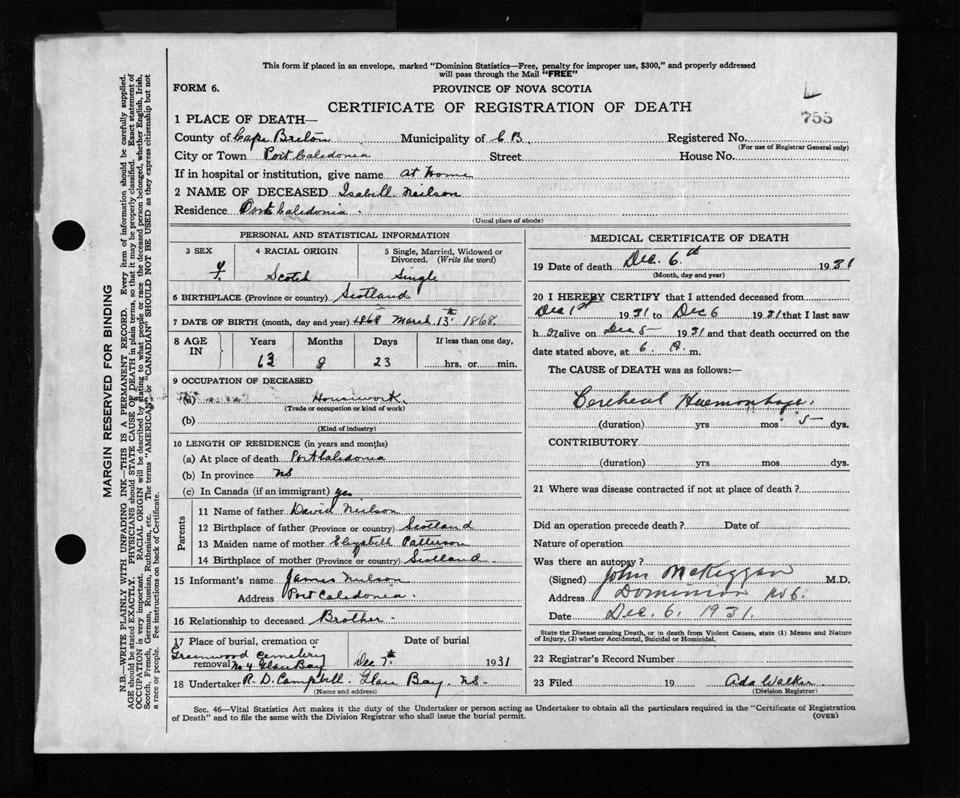 This form if placed in an envelope, marked "Dominion Statistics—Free, penalty for improper use, $300," and properly addressed
will pass through the Mail "FREE"
FORM 6.
PROVINCE OF NOVA SCOTIA
CERTIFICATE OF REGISTRATION OF DEATH
755
1 PLACE OF DEATH—
County of Cape Breton Municipality of C B. Registered No.
(For use of Registrar General only)
City or Town Port Caledonia Street House No.
If in hospital or institution, give name at Home
2 NAME OF DECEASED Isabell Neilson
Residence Port Caledonia.
(Usual place of abode)
PERSONAL AND STATISTICAL INFORMATION
3 SEX 4 RACIAL ORIGIN 5 Single, Married, Widowed or
Divorced. (Write the word)
F. Scotch Single
6 BIRTHPLACE (Province or country) Scotland
7 DATE OF BIRTH (month, day and year) 1868 March 13th 1868.
8 AGE IN Years Months Days If less than one day,
63 8 23 hrs. or min.
9 OCCUPATION OF DECEASED
(a) Housework.
(Trade or occupation or kind of work)
(b)
(Kind of industry)
10 LENGTH OF RESIDENCE (in years and months)
(a) At place of death Port Caledonia
(b) In province NS
(c) In Canada (if an immigrant) yes
Parents
11 Name of father David Neilson
12 Birthplace of father (Province or country) Scotland
13 Maiden name of mother Patterson
14 Birthplace of mother (Province or country) Scotland
15 Informant's name James Neilson
Address Port Caledonia.
16 Relationship to deceased Brother
17 Place of burial, cremation or removal Date of burial
Greenwood Cemetery
No 4 Glace Bay Dec 7th 1931
18 Undertaker R. D. Campbell. Glace Bay. NS.
(Name and address)
MEDICAL CERTIFICATE OF DEATH
19 Date of death Dec. 6th 1931
(Month, day and year)
20 I HEREBY CERTIFY that I attended deceased from
Dec 1st 1931 to Dec 6 1931 that I last saw
h alive on Dec 5 1931 and that death occurred on the
date stated above, at 6. A. m.
The CAUSE of DEATH was as follows:—
Cerebral Haemorrhage.
(duration) yrs mos 5 dys.
CONTRIBUTORY
(duration) yrs mos dys.
21 Where was disease contracted if not at place of death?
Did an operation precede death? Date of
Nature of operation
Was there an autopsy?
(Signed) John McKiggan M.D.
Address Dominion No 6.
Date Dec. 6. 1931.
State the Disease causing Death, or in death from Violent Causes, state (1) Means and Nature
of Injury, (2) whether Accidental, Suicidal or Homicidal.
22 Registrar's Record Number
23 Filed 19 Ada Walker
(Division Registrar)
Sec. 46—Vital Statistics Act makes it the duty of the Undertaker or person acting as Undertaker to obtain all the particulars required in the "Certificate of Registration
of Death" and to file the same with the Division Registrar who shall issue the burial permit.
(OVER)
MARGIN RESERVED FOR BINDING
N.B.—WRITE PLAINLY WITH UNFADING INK—THIS IS A PERMANENT RECORD. Every item of information should be carefully supplied.
AGE should be stated EXACTLY. PHYSICIANS should STATE CAUSE OF DEATH in plain terms, so that it may be properly classified. Exact statement of
OCCUPATION is very important. RACIAL ORIGIN will be described by stating to what people or race the deceased person belonged, whether English, Irish,
Scotch, French, German, Russian, Ruthenian, etc. The terms "AMERICAN" or "CANADIAN" SHOULD NOT BE USED as they express citizenship but not
a race or people. See instructions on back of Certificate.